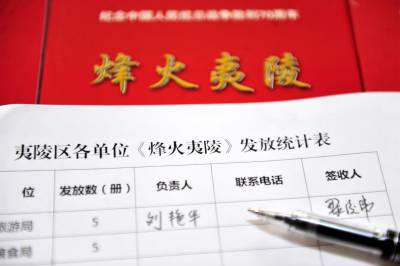 纪念中国人民抗日战争胜利70周年
烽火夷陵
夷陵区各单位《烽火夷陵》发放统计表
位 发放数(册) 负责人 联系电话 签收人
旅游局 5 刘艳华
粮食局 5